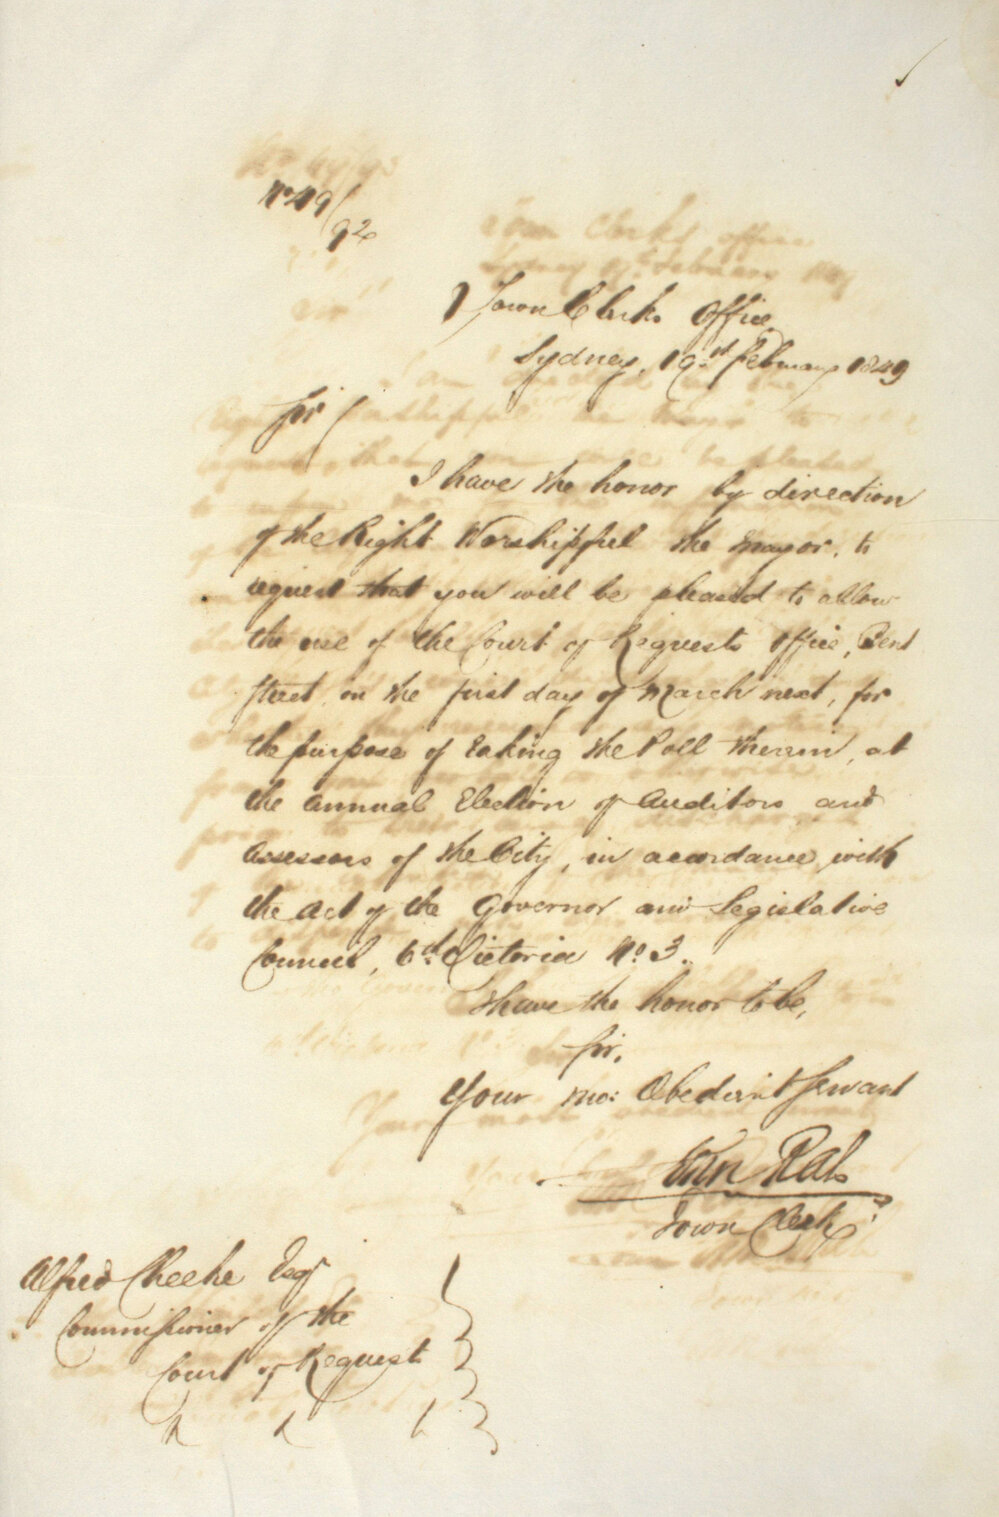 No 49/
92
Town Clerks Office
Sydney, 19th February 1849
Sir
I have the honor by direction
of the Right Worshipful the Mayor, to
request that you will be pleased to allow
the use of the Court of Requests Office, Bent
Street, on the first day of March next, for
the purpose of taking the Poll therein, at
the Annual Election of Auditors and
Assessors of the City, in accordance with
the Act of the Governor and Legislative
Council, 6th Victoria No. 3.
I have the honor to be,
Sir,
Your mo: Obedient Servant
Town Clerk
Alfred Cheeke Esqr
Commissioner of the
Court of Requests